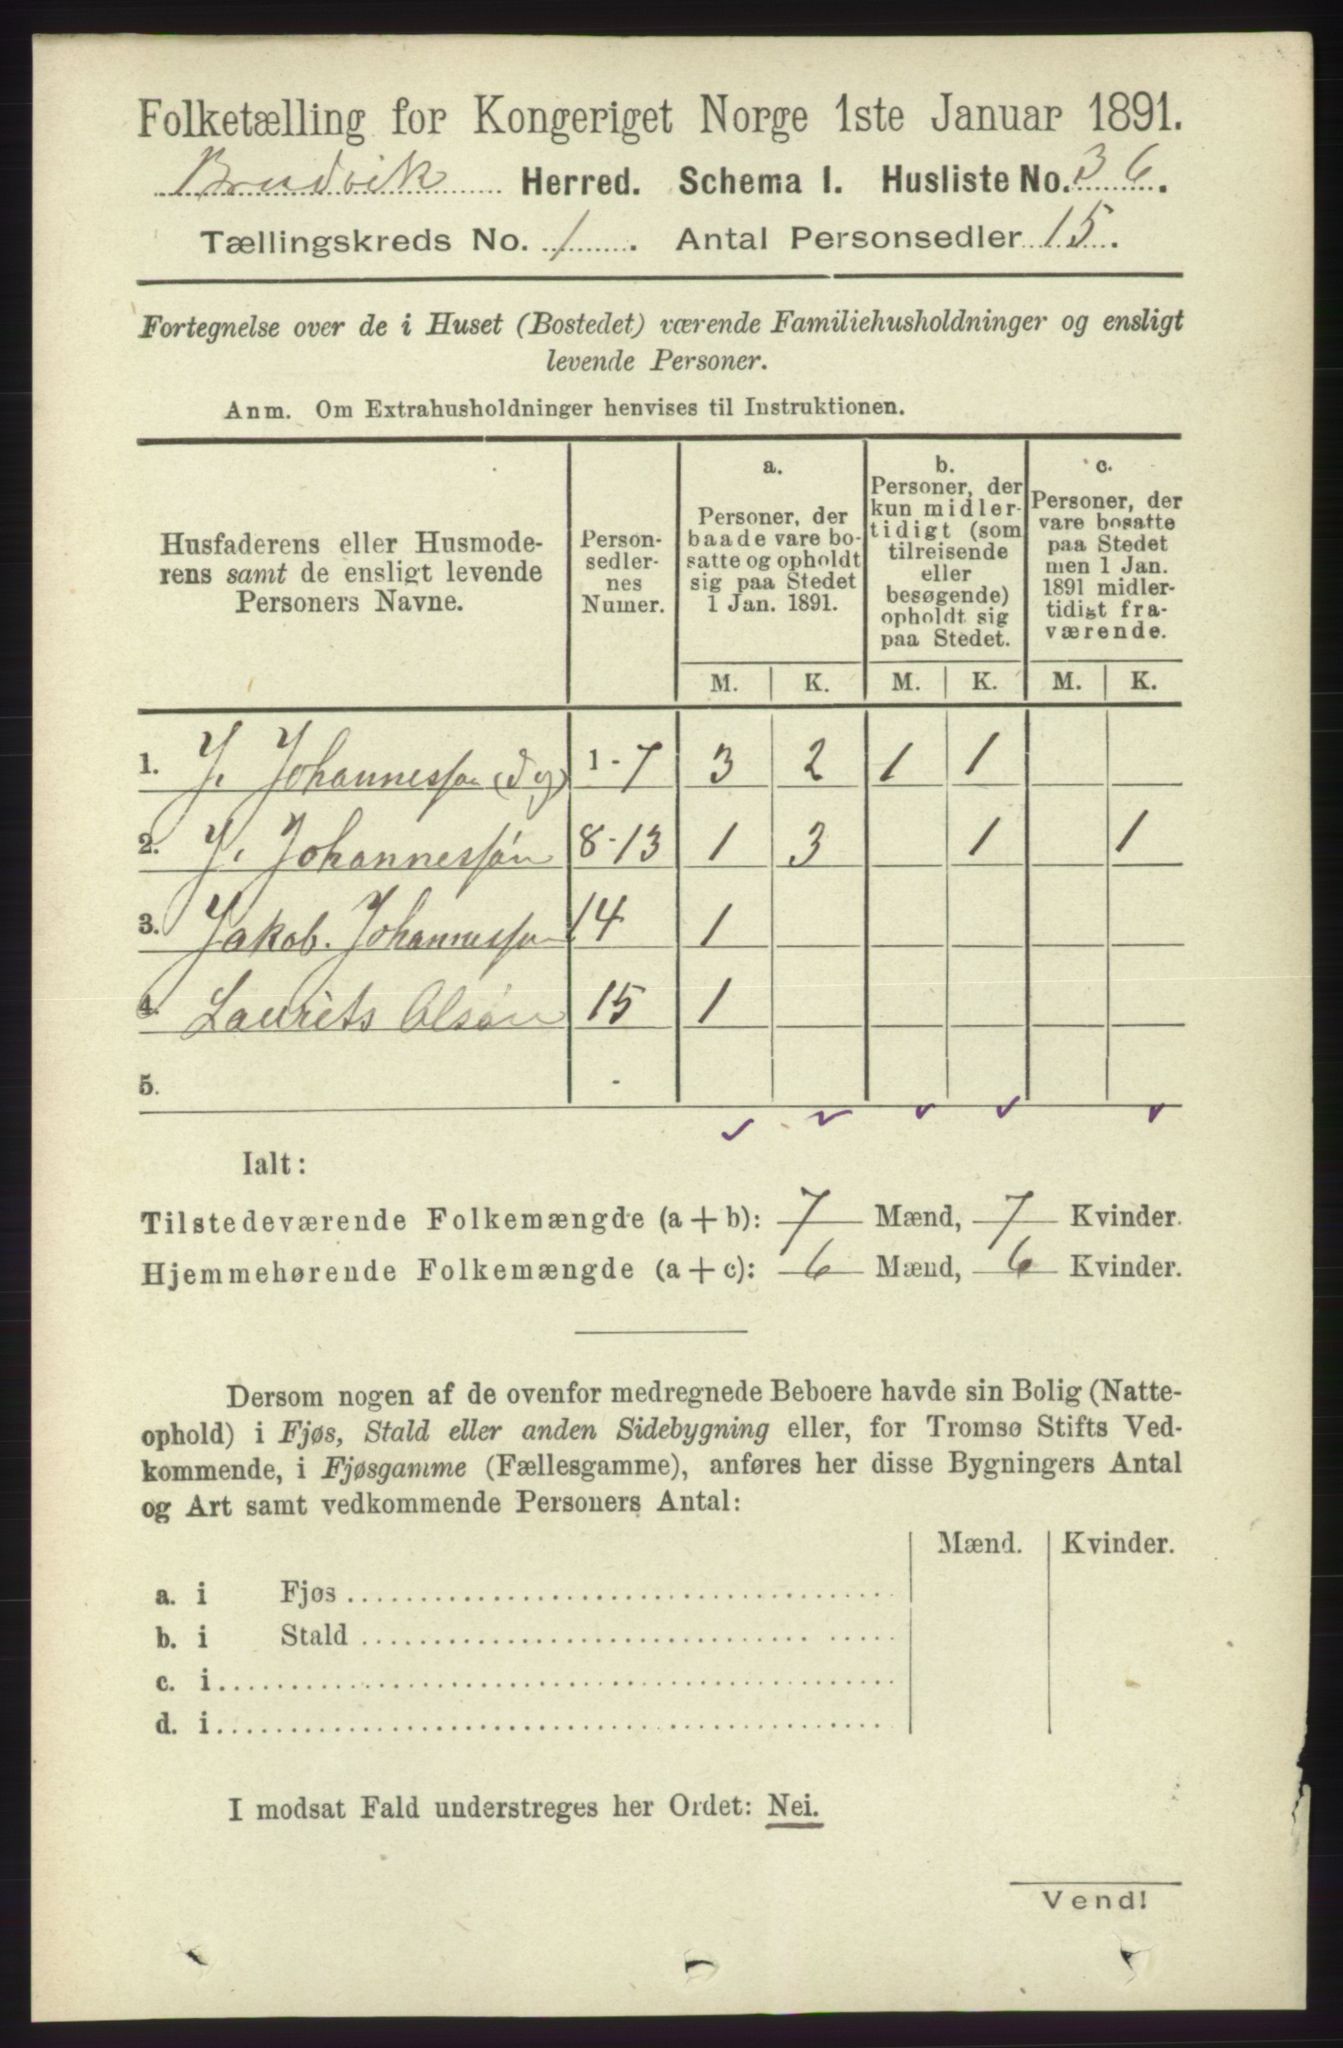 Folketælling for Kongeriget Norge 1ste Januar 1891.
Bruvik Herred. Schema I. Husliste No. 36.
Tællingskreds No. 1. Antal Personsedler 15.
Fortegnelse over de i Huset (Bostedet) værende Familiehusholdninger og ensligt
levende Personer.
Anm. Om Extrahusholdninger henvises til Instruktionen.
Husfaderens eller Husmode-
rens samt de ensligt levende
Personers Navne.
Person-
sedler-
nes
Numer.
a.
Personer, der
baade vare bo-
satte og opholdt
sig paa Stedet
1 Jan. 1891.
b.
Personer, der
kun midler-
tidigt (som
tilreisende
eller
besøgende)
opholdt sig
paa Stedet.
c.
Personer, der
vare bosatte
paa Stedet
men 1 Jan.
1891 midler-
tidigt fra-
værende.
M. K. M. K. M. K.
1. J. Johannesson (d y) 1-7 3 2 1 1
2. J. Johannessøn 8-13 1 3 1 1
3. Jakob. Johannesson 14 1
4. Laurits Olsøn 15 1
5. -
Ialt:
Tilstedeværende Folkemængde (a + b): 7 Mænd, 7 Kvinder.
Hjemmehørende Folkemængde (a + c): 6 Mænd, 6 Kvinder.
Dersom nogen af de ovenfor medregnede Beboere havde sin Bolig (Natte-
ophold) i Fjøs, Stald eller anden Sidebygning eller, for Tromsø Stifts Ved-
kommende, i Fjøsgamme (Fællesgamme), anføres her disse Bygningers Antal
og Art samt vedkommende Personers Antal:
Mænd. Kvinder.
a. i Fjøs
b. i Stald
c. i
d. i
I modsat Fald understreges her Ordet: Nei.
Vend!